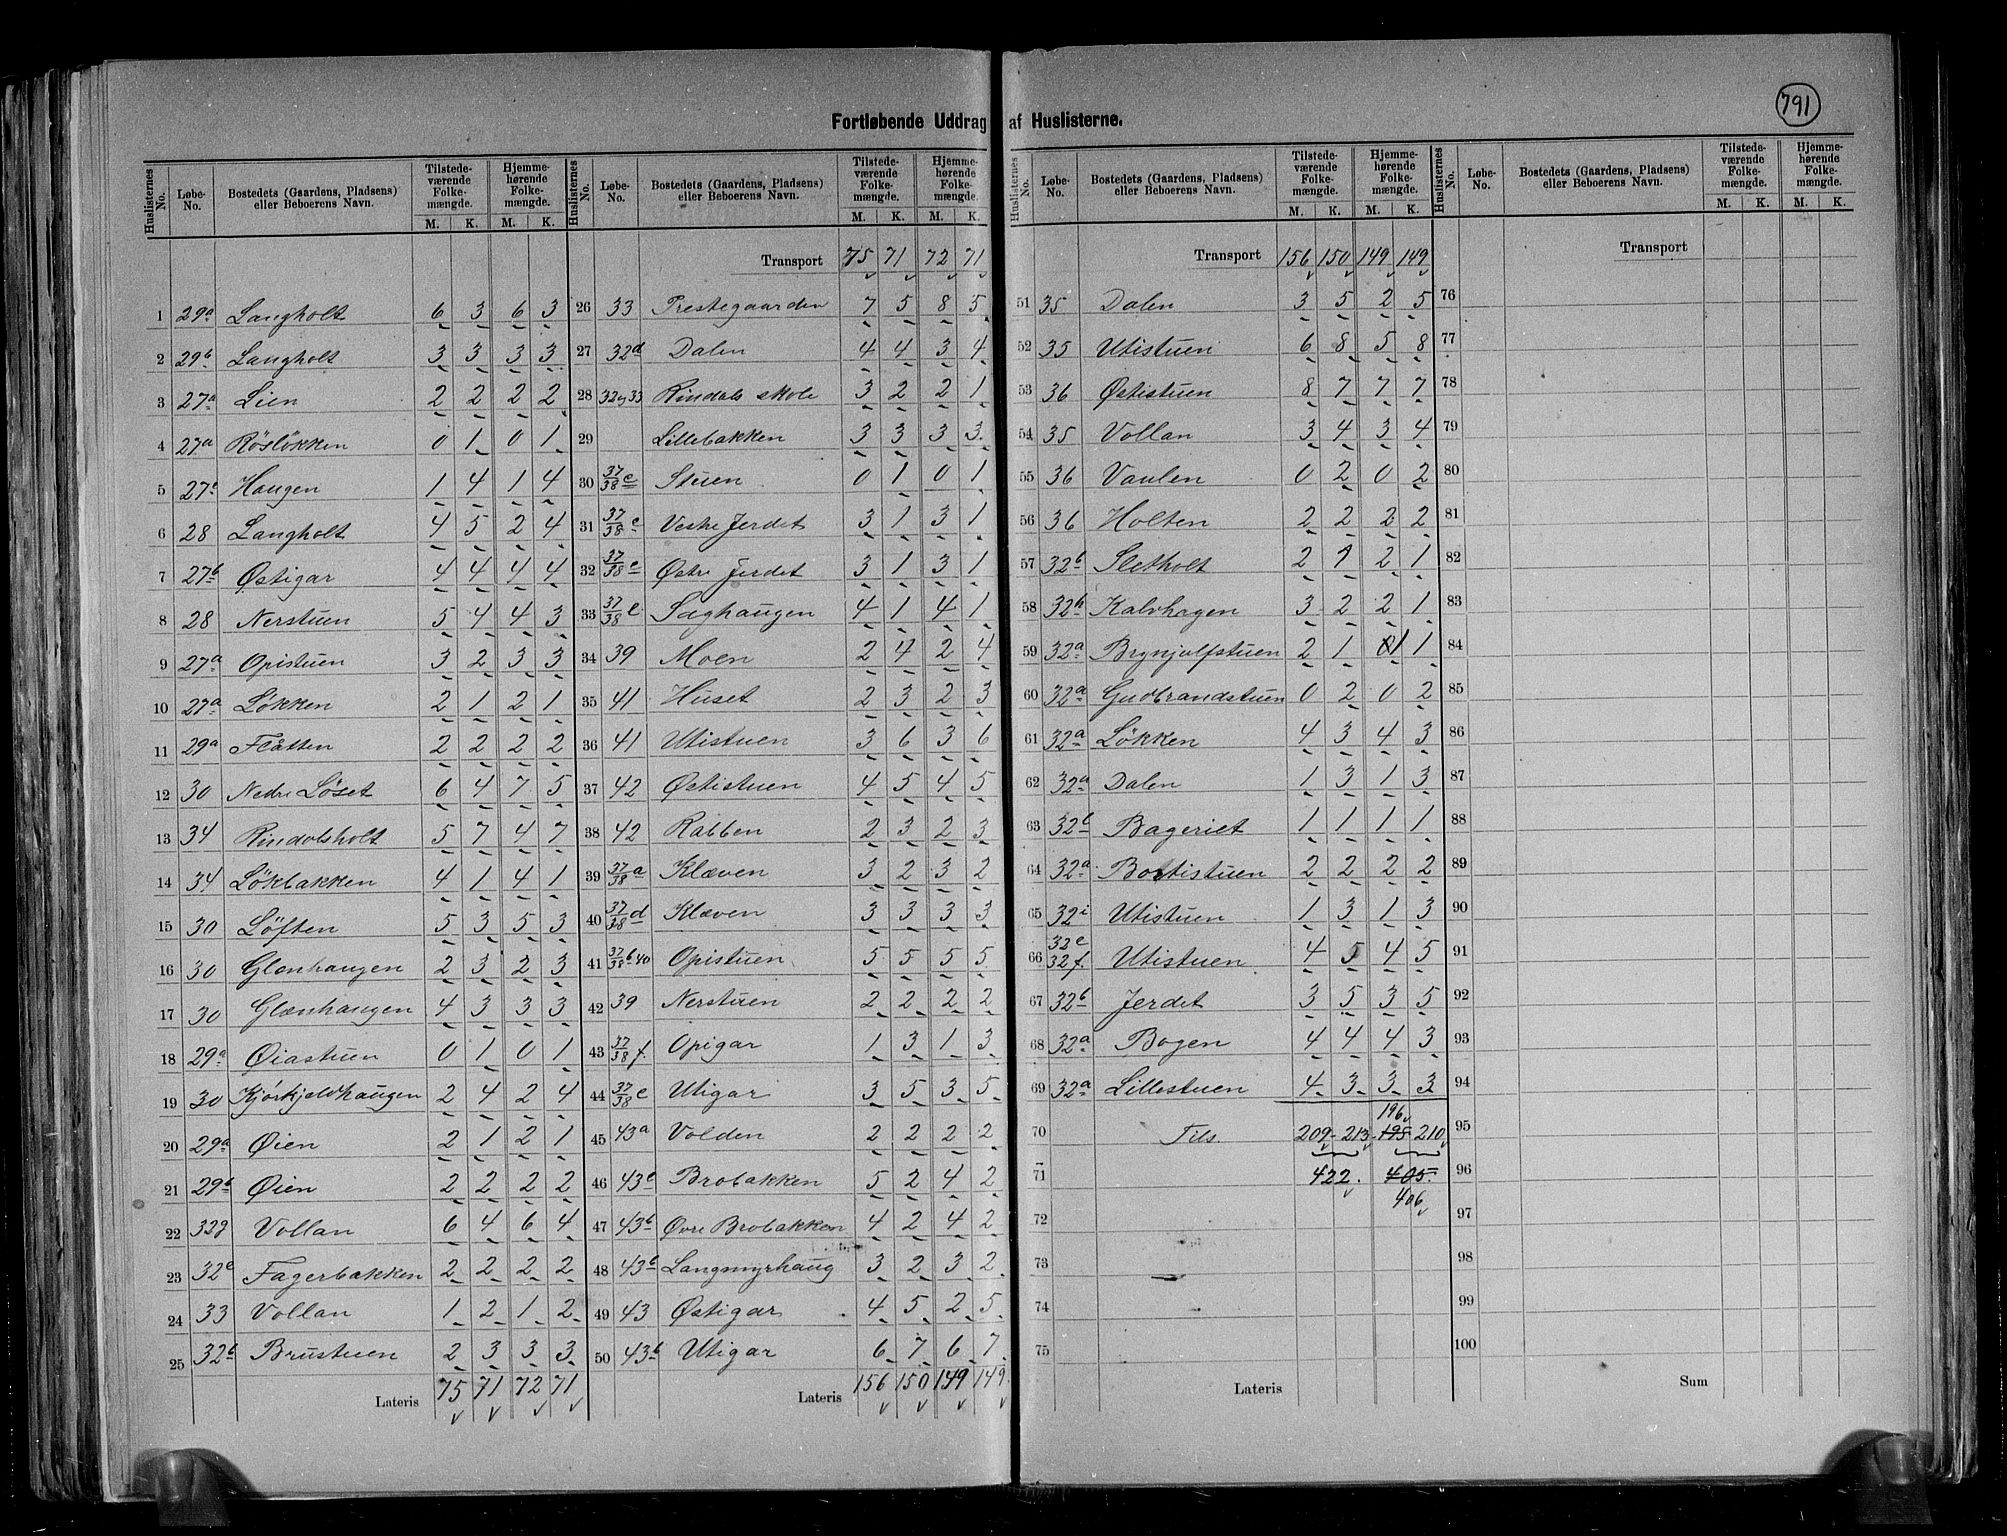 791
Fortløbende Uddrag af Huslisterne.
Huslisternes No. | Løbe-No. | Bostedets (Gaardens, Pladsens) eller Beboerens Navn. | Tilstedeværende Folkemængde. M. K. | Hjemmehørende Folkemængde. M. K.
1 29a Langholt 6 3 6 3
2 29b Langholt 3 3 3 3
3 27a Lien 2 2 2 2
4 27a Rösløkken 0 1 0 1
5 27c Haugen 1 4 1 4
6 28 Langholt 4 5 2 4
7 27b Østigar 4 4 4 4
8 28 Nerstuen 5 4 4 3
9 27a Opistuen 3 2 3 3
10 27a Løkken 2 1 2 1
11 29a Flåtten 2 2 2 2
12 30 Nedre Löset 6 4 7 5
13 34 Rindalsholt 5 7 4 7
14 34 Lökbakken 4 1 4 1
15 30 Löften 5 3 5 3
16 30 Glænhaugen 2 3 2 3
17 30 Glænhaugen 4 3 3 3
18 29a Øiastuen 0 1 0 1
19 30 Kjörkjeldhaugen 2 4 2 4
20 29a Øien 2 1 2 1
21 29b Øien 2 2 2 2
22 32g Vollan 6 4 6 4
23 32e Fagerbakken 2 2 2 2
24 33 Vollan 1 2 1 2
25 32b Brustuen 2 3 3 3
Lateris 75 71 72 71
Transport 75 71 72 71
26 33 Prestegaarden 7 5 8 5
27 32d Dalen 4 4 3 4
28 32 og 33 Rindals skole 3 2 2 1
29 Lillebakken 3 3 3 3
30 37/38 e Stuen 0 1 0 1
31 37/38 e Vestre Jerdet 3 1 3 1
32 37/38 e Østre Jerdet 3 1 3 1
33 37/38 e Saghaugen 4 1 4 1
34 39 Moen 2 4 2 4
35 41 Huset 2 3 2 3
36 41 Utistuen 3 6 3 6
37 42 Østistuen 4 5 4 5
38 42 Rabben 2 3 2 3
39 37/38 a Klæven 3 2 3 2
40 37/38 d Klæven 3 3 3 3
41 37/38 b 40 Opistuen 5 5 5 5
42 39 Nerstuen 2 2 2 2
43 37/38 f. Opigar 1 3 1 3
44 37/38 c Utigar 3 5 3 5
45 43a Volden 2 2 2 2
46 43c Brobakken 5 2 4 2
47 43b Øvre Brobakken 4 2 4 2
48 43b Langmyrhaug 3 2 3 2
49 43 Østigar 4 5 2 5
50 43b Utigar 6 7 6 7
Lateris 156 150 149 149
Huslisternes No. | Løbe-No. | Bostedets (Gaardens, Pladsens) eller Beboerens Navn. | Tilstedeværende Folkemængde. M. K. | Hjemmehørende Folkemængde. M. K.
Transport 156 150 149 149
51 35 Dalen 3 5 2 5
52 35 Utistuen 6 8 5 8
53 36 Østistuen 8 7 7 7
54 35 Vollan 3 4 3 4
55 36 Vaulen 0 2 0 2
56 36 Holten 2 2 2 2
57 32b Sletholt 2 1 2 1
58 32h Kalvhagen 3 2 2 1
59 32a Brynjulfstuen 2 1 1 1
60 32a Gudbrandstuen 0 2 0 2
61 32a Løkken 4 3 4 3
62 32a Dalen 1 3 1 3
63 32b Bageriet 1 1 1 1
64 32a Bortistuen 2 2 2 2
65 32i Utistuen 1 3 1 3
66 32c 32f. Utistuen 4 5 4 5
67 32b Jerdet 3 5 3 5
68 32a Bogen 4 4 4 3
69 32a Lillestuen 4 3 3 3
196
70 Tils. 209 213 195 210
71 422. 405
406
72
73
74
75
Lateris
Transport
76
77
78
79
80
81
82
83
84
85
86
87
88
89
90
91
92
93
94
95
96
97
98
99
100
Sum